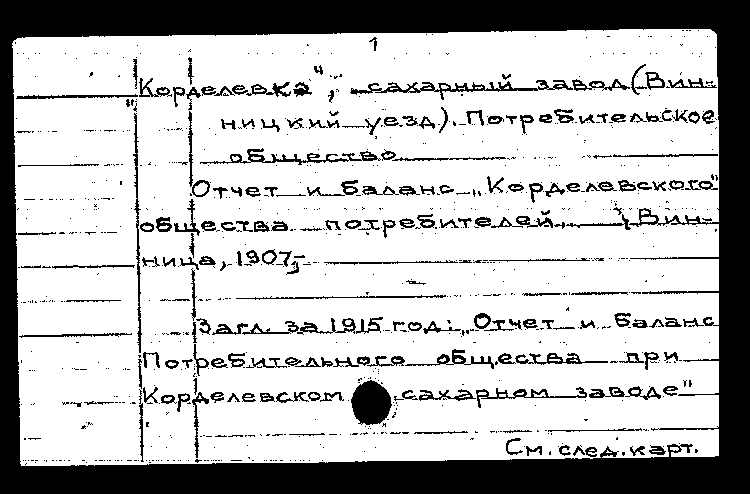 1
"Корделевка", сахарный завод (Вин-
ницкий уезд). Потребительское
общество
Отчет и баланс "Корделевского"
общества потребителей. Вин-
ница, 1907-
Загл. за 1915 год: "Отчет и баланс
Потребительного общества при
Корделевском сахарном заводе"
См. след. карт.